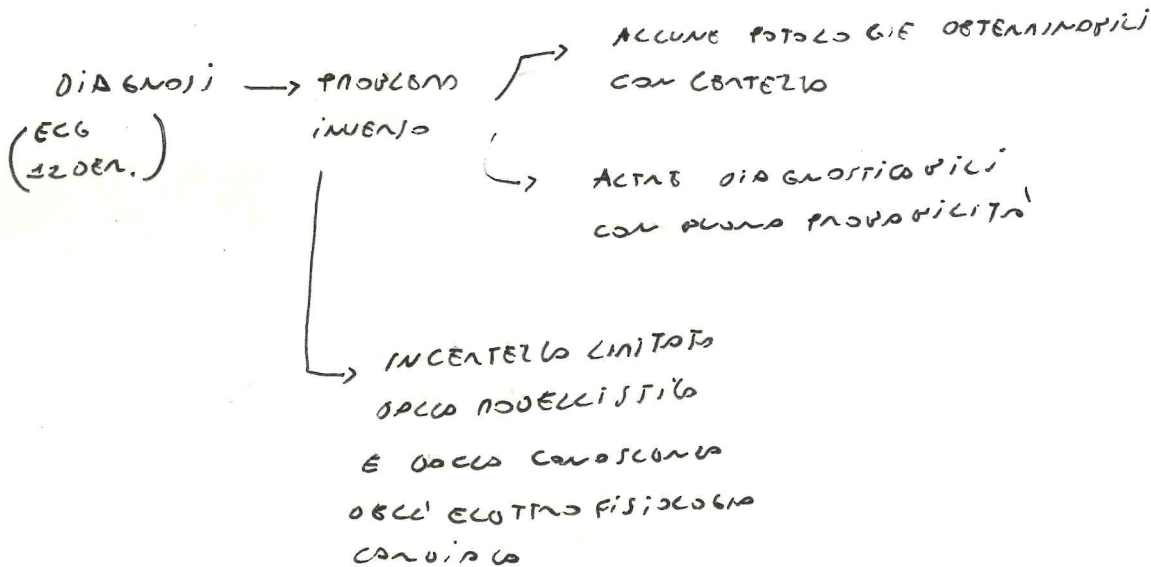 DIAGNOSI → PROBLEMA
INVERSO
(ECG
12 DER.)
→ ALCUNE PATOLOGIE DETERMINABILI
CON CERTEZZA
→ ALTRE DIAGNOSTICABILI
CON BUONA PROBABILITÀ
→ INCERTEZZA LIMITATA
DALLA MODELLISTICA
E DALLA CONOSCENZA
DELL'ELETTROFISIOLOGIA
CARDIACA